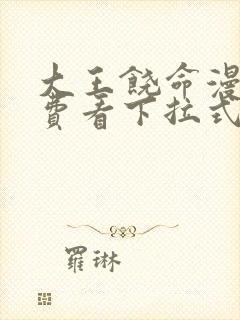 大王饶命漫
费看下拉式
羅琳